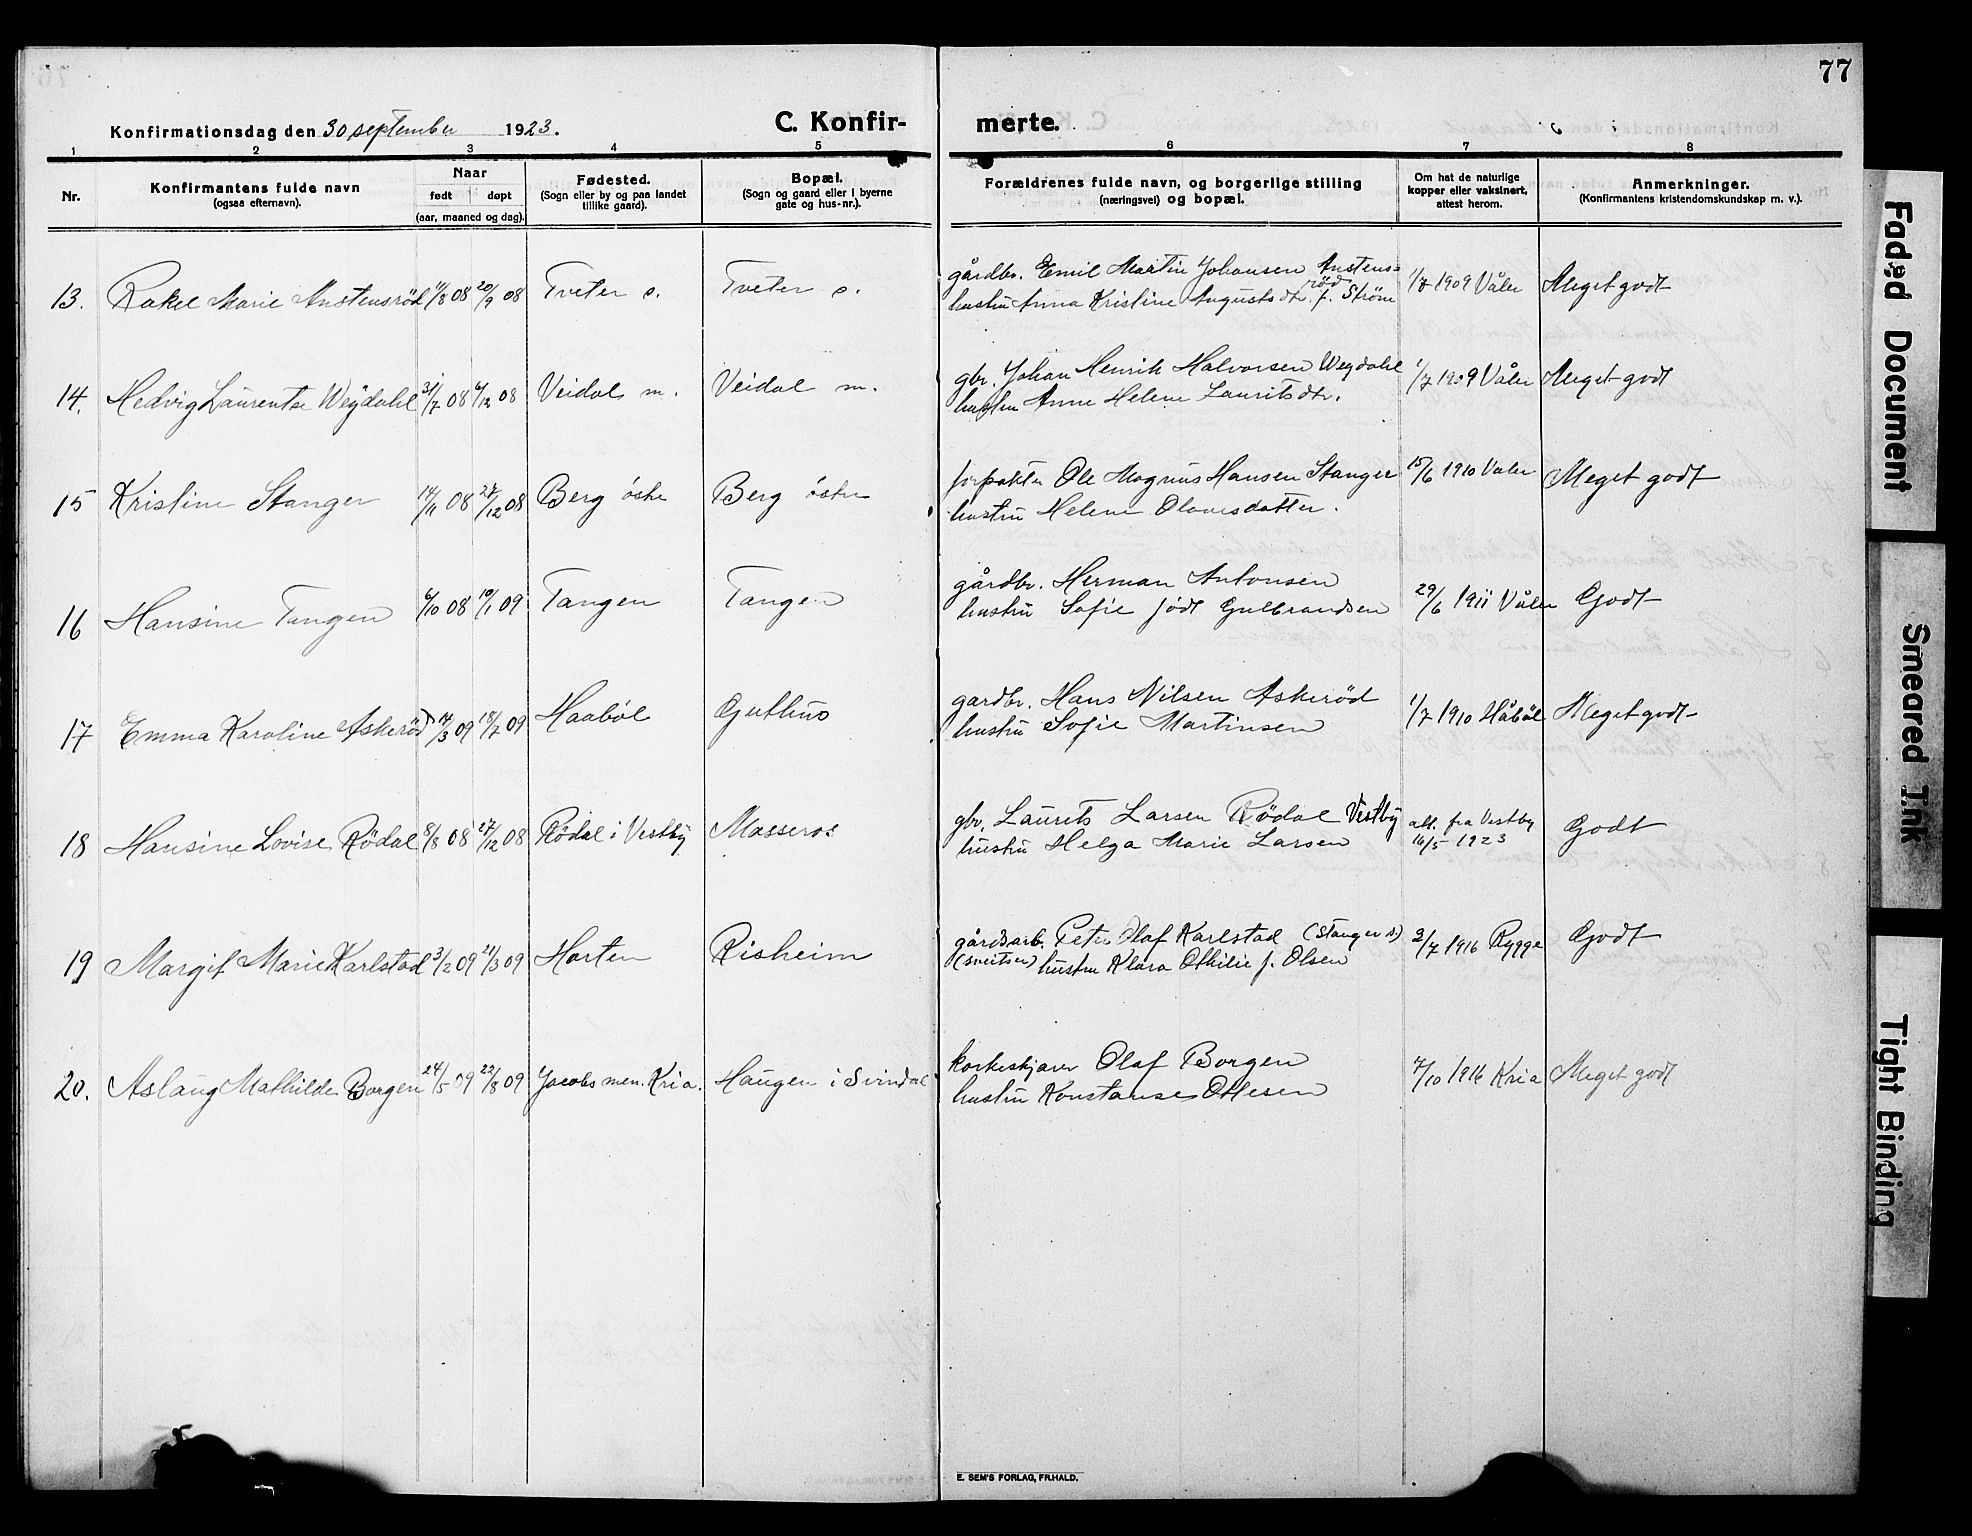 77
Konfirmationsdag den 30 september 1923.
C. Konfir-
merte.
1 2 3 4 5 6 7 8
Nr.
Konfirmantens fulde navn
(ogsaa efternavn).
Naar
født døpt
(aar, maaned og dag).
Fødested.
(Sogn eller by og paa landet
tillike gaard).
Bopæl.
(Sogn og gaard eller i byerne
gate og hus-nr.).
Forældrenes fulde navn, og borgerlige stilling
(næringsvei) og bopæl.
Om hat de naturlige
kopper eller vaksinert,
attest herom.
Anmerkninger.
(Konfirmantens kristendomskundskap m. v.).
13. Rakel Marie Anstensröd 11/8 08 20/9 08 Tveter ö. Tveter ö.
gårdbr. Emil Martin Johansen Anstens=
röd
hustru Anna Kristine Augustsdtr. f. Ström
1/7 1909 Våler Meget godt
14. Hedvig Laurentse Weydahl 31/7 08 6/12 08 Veidal m. Veidal m.
gbr. Johan Henrik Halvorsen Weydahl
hustru Anne Helene Lauritsdtr.
1/7 1909 Våler Meget godt
15 Kristine Stanger 14/11 08 27/12 08 Berg östre Berg östre
forpakter Ole Magnus Hansen Stanger
hustru Helene Olavesdatter.
15/6 1910 Våler Meget godt
16 Hansine Tangen 6/10 08 10/1 09 Tangen Tangen
gårdbr. Herman Antonsen
hustru Sofie födt Gulbrandsen
29/6 1911 Våler Godt
17 Emma Karoline Askeröd 14/3 09 18/7 09 Haaböl Guthus
gardbr. Hans Nilsen Askeröd
hustru Sofie Martinsen
1/7 1910 Håböl Meget godt
18 Hansine Lovise Rödal 8/8 08 27/12 08 Rödal i Vestby Masseros
gbr. Laurits Larsen Rödal Vestby
hustru Helga Marie Larsen
att. fra Vestby
16/5 1923
Godt
19 Margit Marie Karlstad 3/2 09 21/3 09 Horten Risheim
gårdsarb. Peter Olaf Karlstad (Stanger s)
(sveitser) hustru Klara Othilie f. Olsen
3/7 1916 Rygge Godt
20. Aslaug Mathilde Borgen 24/5 09 22/8 09 Jacobs men. Kria. Haugen i Svindal
korkeskjærer Olaf Borgen
hustru Konstanse Ottesen
7/10 1916 Kria Meget godt
E. SEM'S FORLAG, FR.HALD.
Faded Document
Smeared Ink
Tight Binding